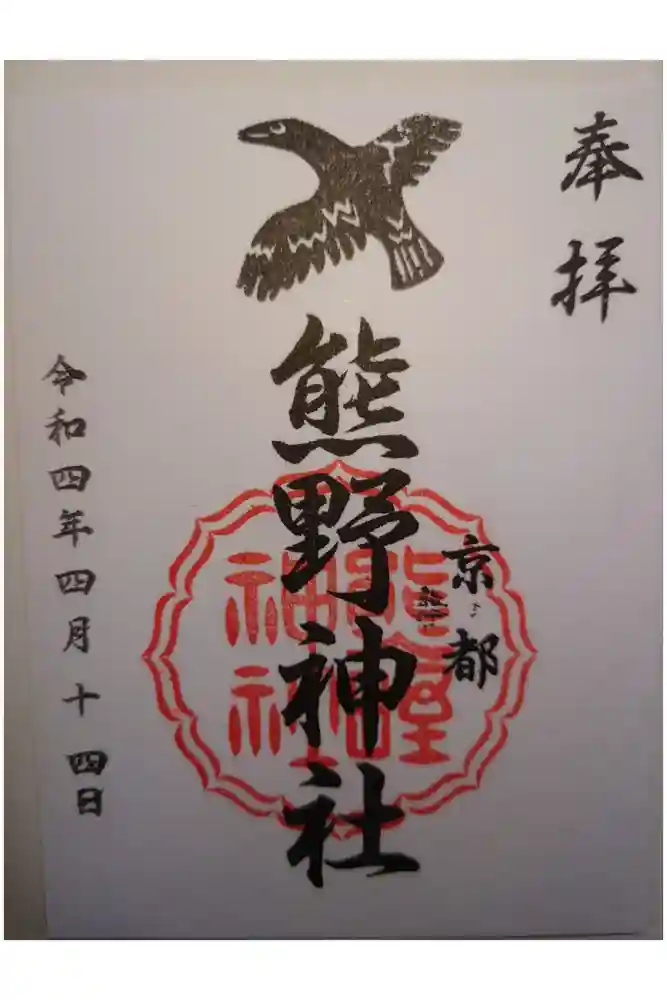 奉拝
京都
熊野神社
熊野
神社
令和四年四月十四日